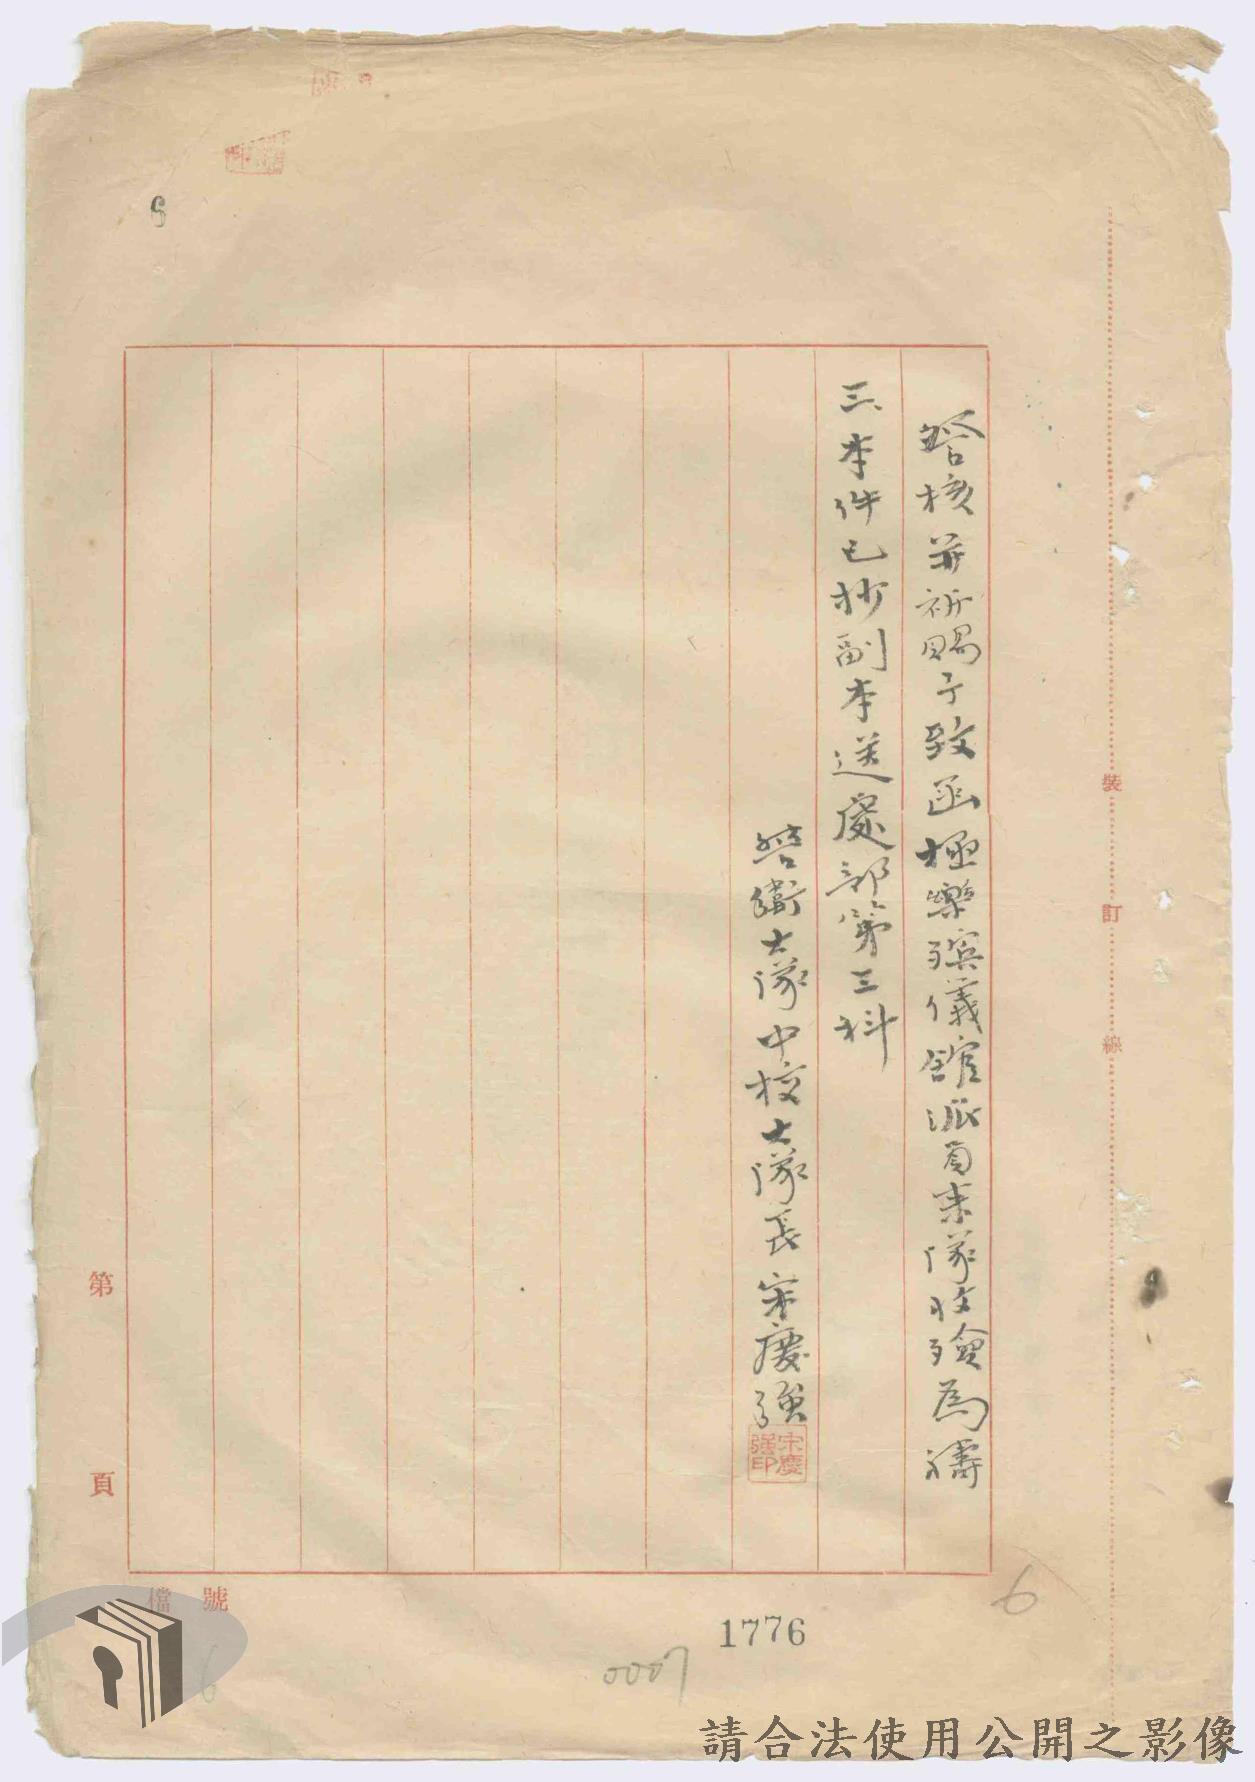 詧核并祈賜予致函極樂殯儀館派員來隊收殮為禱
三、本件已抄副本送處部第三科
警衛大隊中校大隊長宋慶強
宋慶強印
裝
訂
線
第
頁
檔號
6
6
6
1776
0007
請合法使用公開之影像